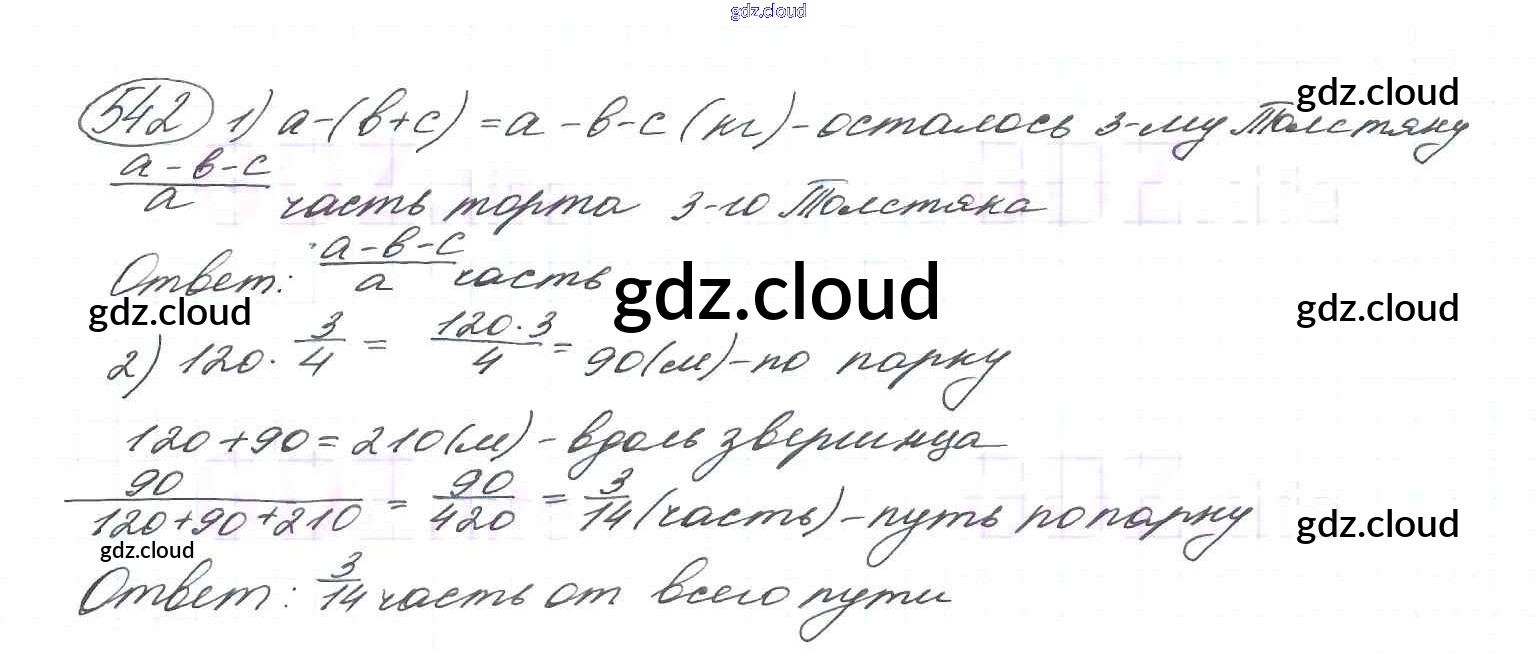 gdz.cloud
gdz.cloud
542 1) a-(в+c) = a-в-c (кг) - осталось 3-му Толстяку
a-в-c/a часть торта 3-го Толстяка
Ответ: a-в-c/a часть
gdz.cloud
gdz.cloud
gdz.cloud
2) 120 · 3/4 = 120·3/4 = 90(м) - по парку
120+90=210(м) - вдоль зверинца
90/120+90+210 = 90/420 = 3/14 (часть) - путь по парку
gdz.cloud
gdz.cloud
Ответ: 3/14 часть от всего пути